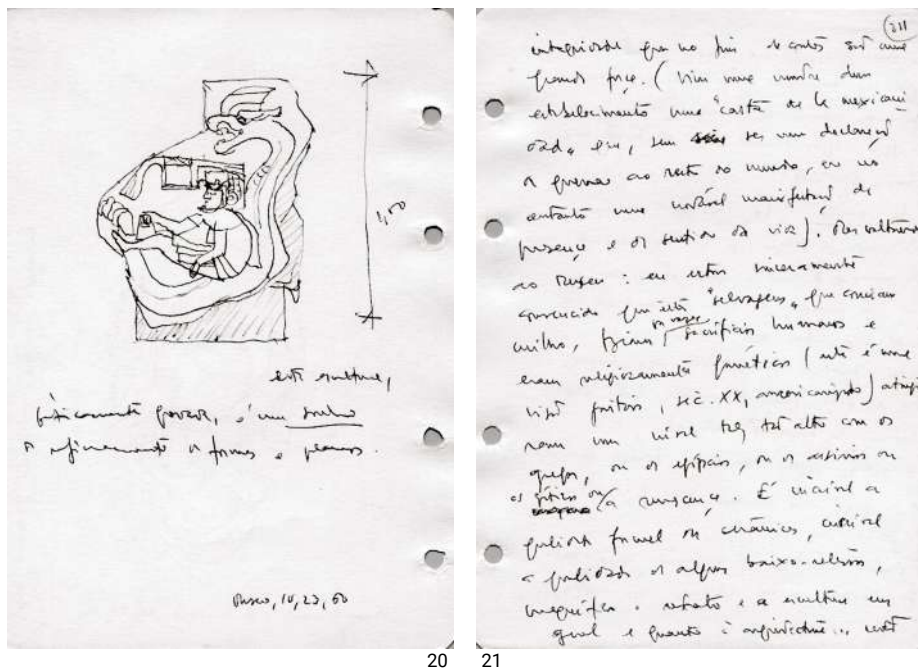 1,50
esta escultura,
praticamente gravada, é um sonho
de refinamento de formas e planos.
Museu, 10, 23, 60
20
211
integridade que no fim de contas são uma
grande força. (Vim uma montra dum
estabelecimento uma "casta de la mexicani
dad„ que, sem ser uma declaração
de guerra ao resto do mundo, era no
entanto uma notável manifestação de
presença e de sentido da vida). Mas voltemos
ao Museu: eu estou sinceramente
convencido que estes "selvagens„ que comiam
milho, faziam sacrifícios humanos e
eram religiosamente fanáticos (isto é uma
visão, séc. XX, americanizado) atingi
ram um nível tão alto com os
gregos, ou os egípcios, ou os assírios ou
os góticos ou a renascença. É incrível a
qualidade formal da cerâmica, incrível
a qualidade de alguns baixo-relevos,
magnífico o retrato e a escultura em
geral e quanto à arquitectura .. está
21